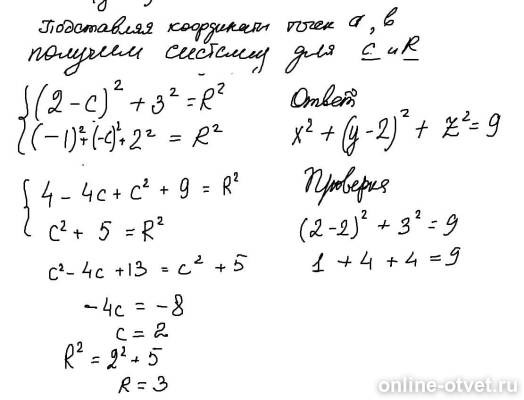 Подставляя координаты точек a, b
получим систему для c и R
{ (2 - c)² + 3² = R²
{ (-1)² + (-c)² + 2² = R²
{ 4 - 4c + c² + 9 = R²
{ c² + 5 = R²
c² - 4c + 13 = c² + 5
-4c = -8
c = 2
R² = 2² + 5
R = 3
Ответ
x² + (y - 2)² + z² = 9
Проверка
(2 - 2)² + 3² = 9
1 + 4 + 4 = 9
online-otvet.ru